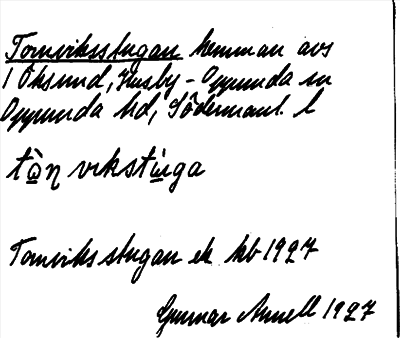 Tornviksstugan hemman avs
i Öksund, Husby-Oppunda sn
Oppunda hd, Södermanl. l
tò̠ŋ vikstúga
Tornviksstugan ek kb 1927
Gunnar Annell 1927